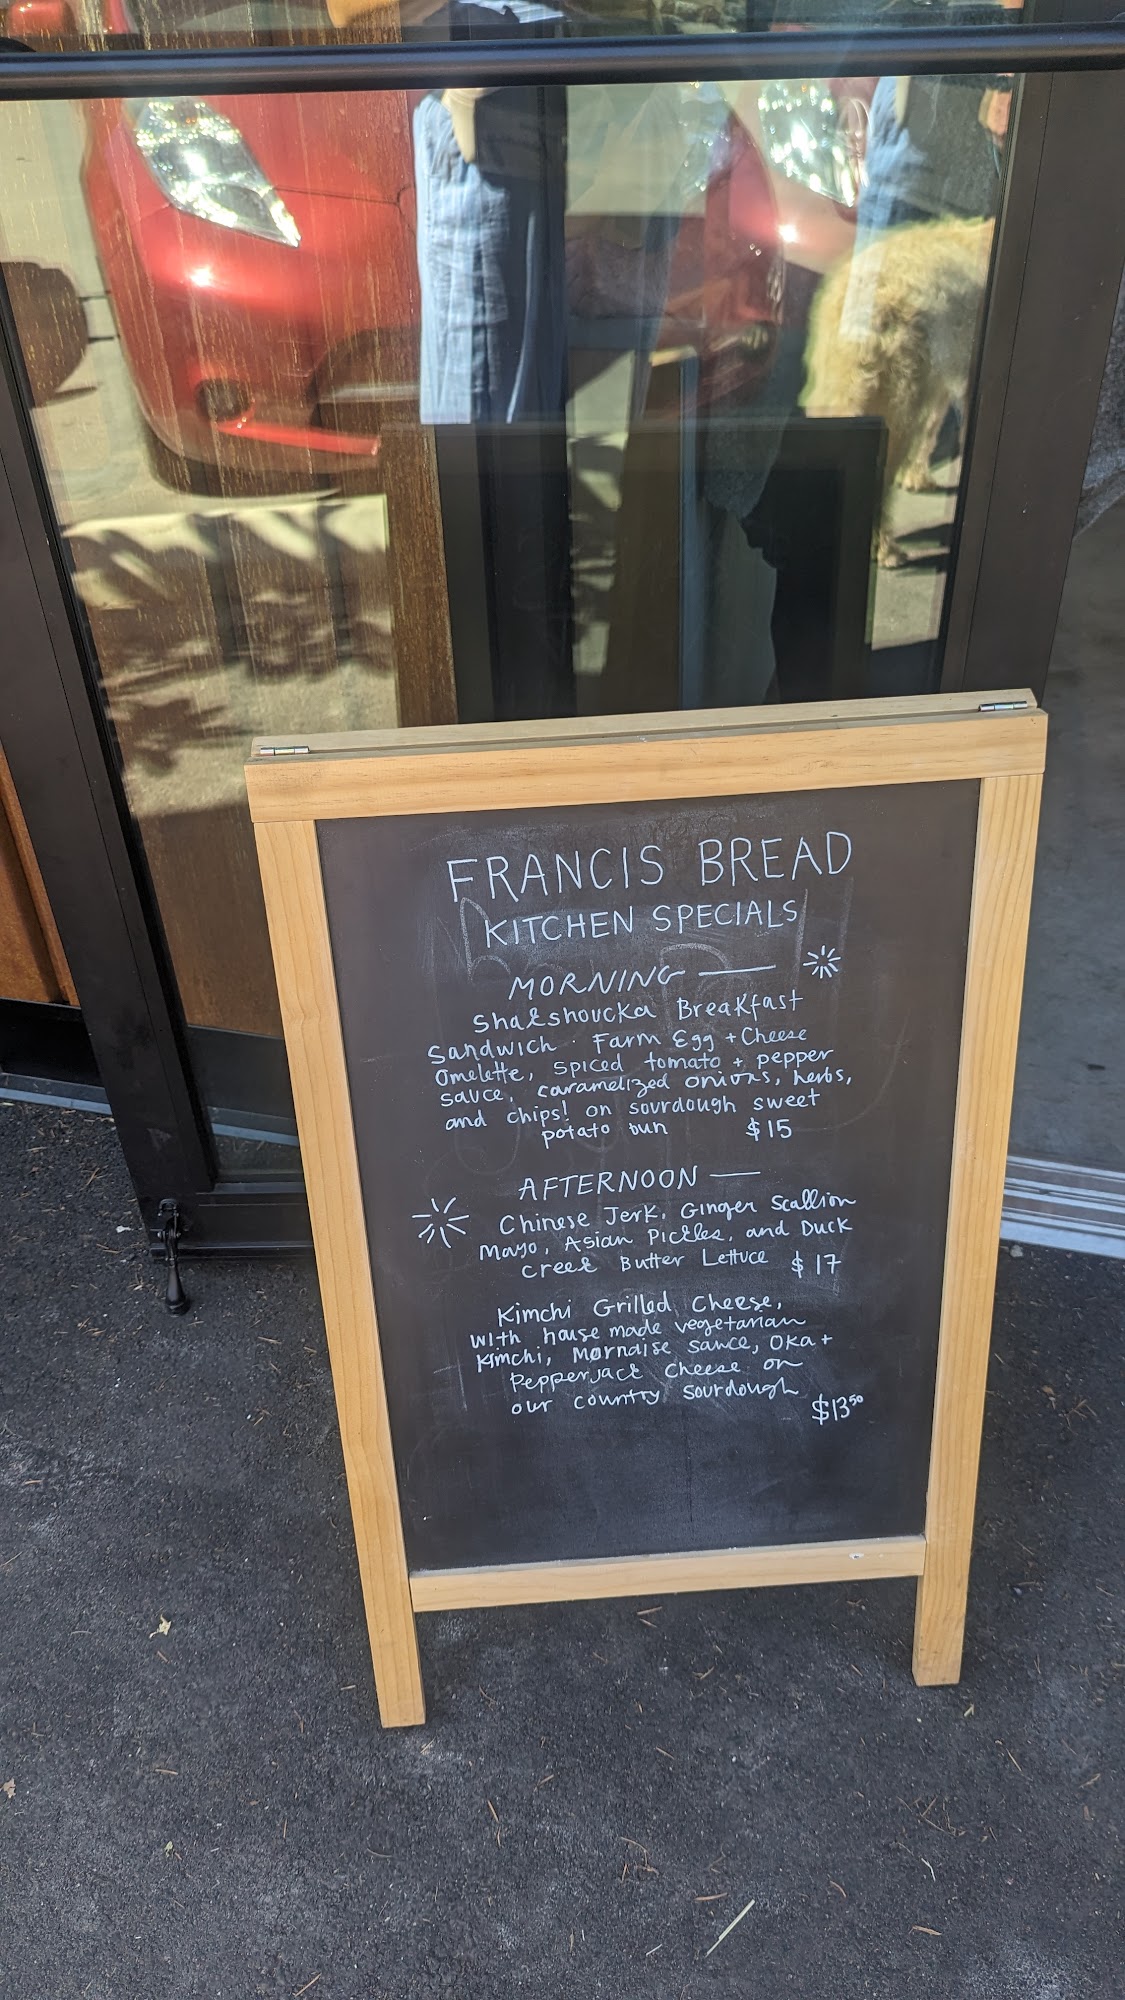 FRANCIS BREAD
KITCHEN SPECIALS
MORNING
Shakshoucka Breakfast
Sandwich · Farm Egg + Cheese
Omelette, spiced tomato + pepper
sauce, caramelized onions, herbs,
and chips! on sourdough sweet
potato bun $15
AFTERNOON
Chinese Jerk, Ginger Scallion
Mayo, Asian Pickles, and Duck
Creek Butter Lettuce $17
Kimchi Grilled Cheese,
with house made vegetarian
Kimchi, Mornaise sauce, OKA +
Pepperjack Cheese on
our country sourdough
$13⁵⁰